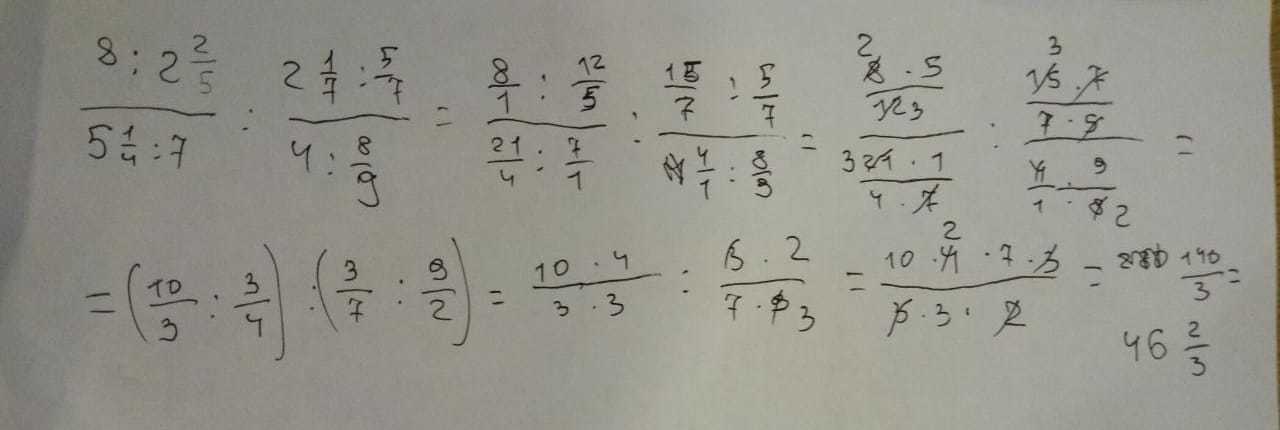 8 : 2 2/5 / 5 1/4 : 7 : 2 1/7 : 5/7 / 4 : 8/9 = 8/1 : 12/5 / 21/4 : 7/1 : 15/7 : 5/7 / 4/1 : 8/9 = 2 8 · 5 / 12 3 / 3 21 · 1 / 4 · 7 : 3 15 · 7 / 7 · 5 / 4/1 · 9/8 2 =
= (10/3 : 3/4) : (3/7 : 9/2) = 10 · 4 / 3 · 3 : 3 · 2 / 7 · 9 3 = 10 · 4 2 · 7 · 3 / 3 · 3 · 2 = 140/3 =
46 2/3